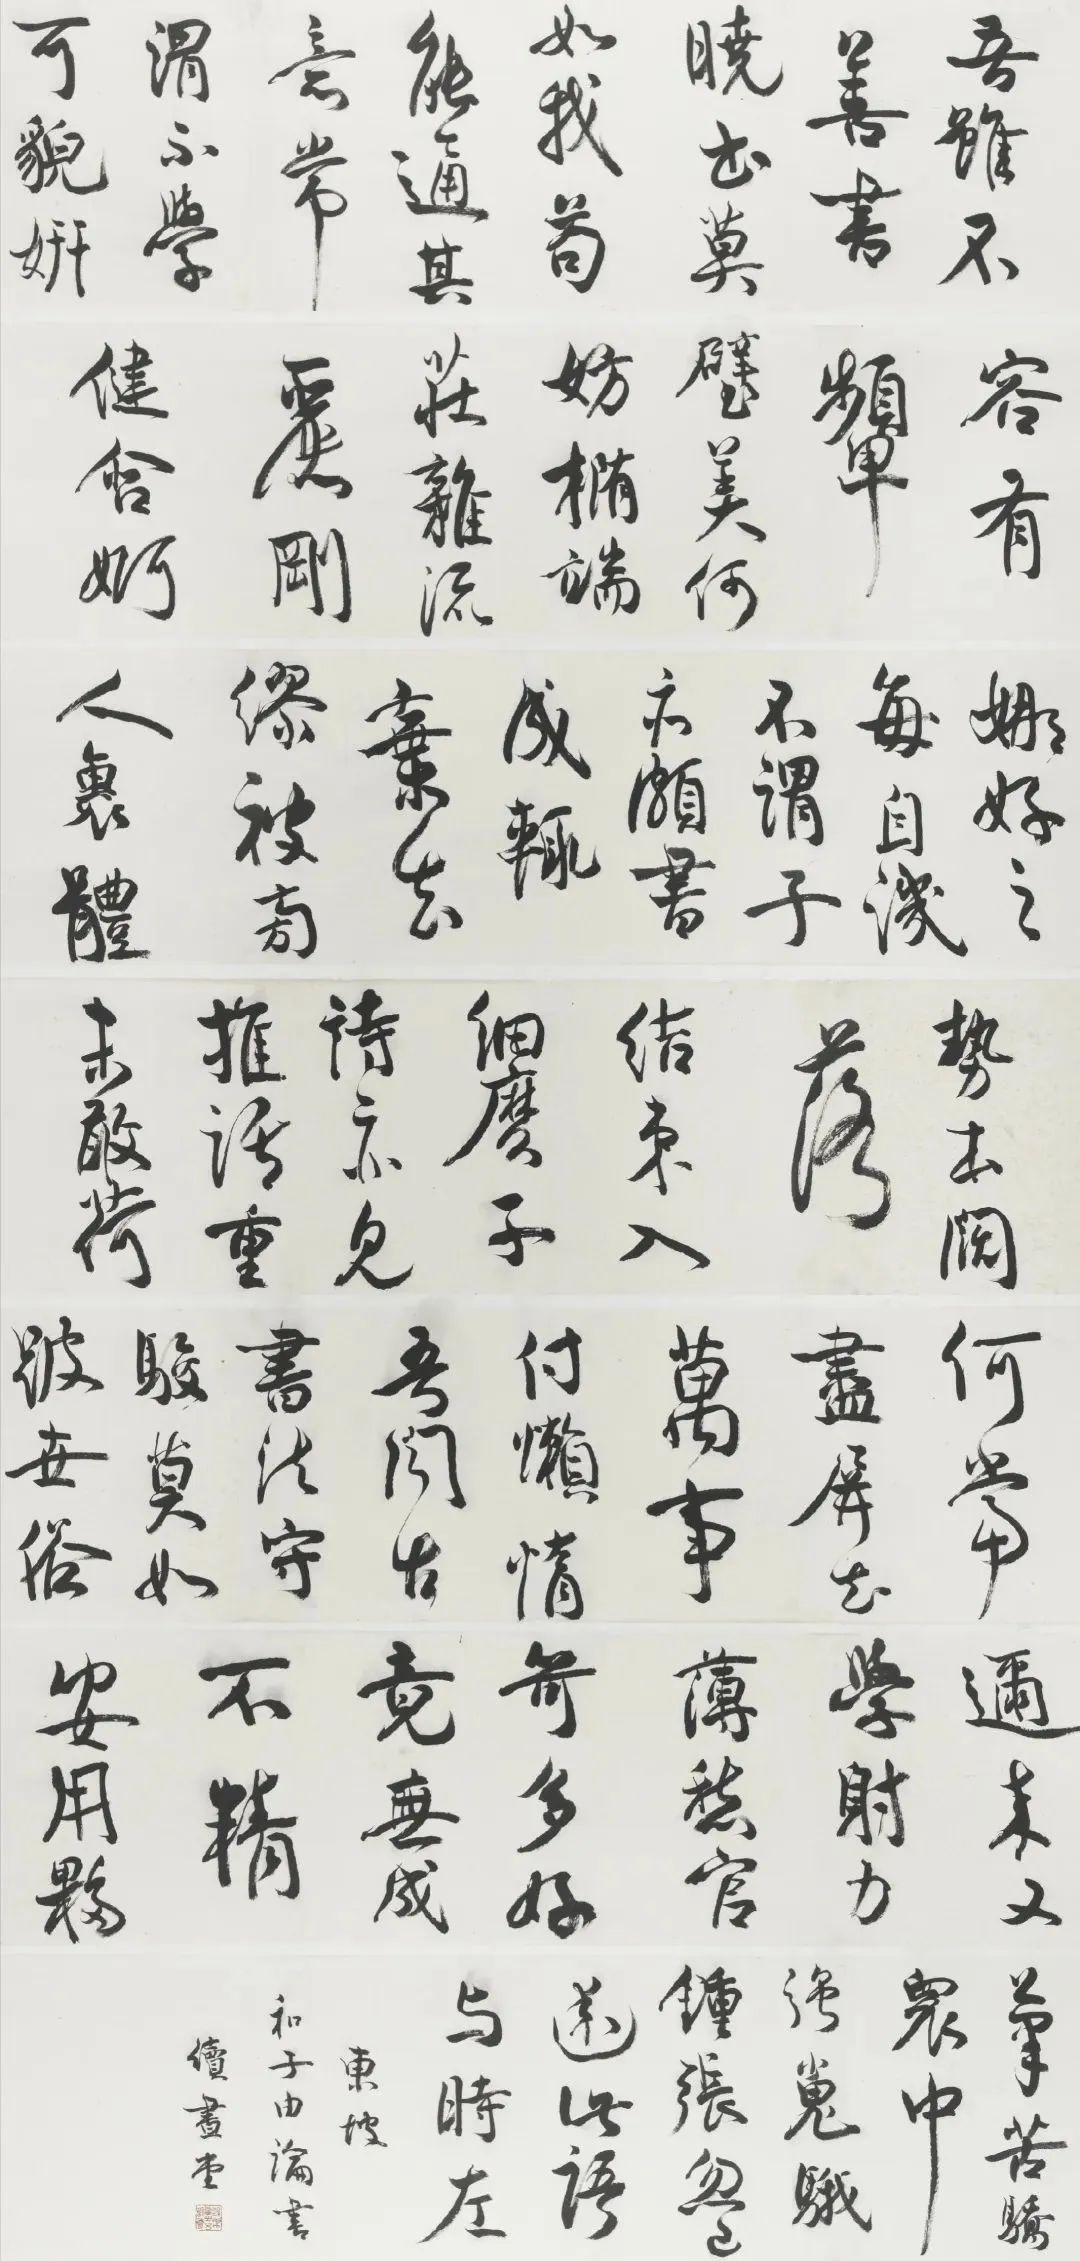 吾雖不
善書
曉書莫
如我苟
能通其
意常
謂不學
可貌妍
容有
顰
璧美何
妨橢端
莊雜流
麗剛
健含婀
娜好之
每自譏
不謂子
亦頗書
成輒
棄去
繆被旁
人裹體
勢本闊
落
結束入
細麼子
詩亦見
推語重
未敢荷
何當
盡屏去
萬事
付懶惰
吾聞古
書法守
駿莫如
跛世俗
邇來又
學射力
薄愁官
笴多好
竟無成
不精
安用夥
筆苦驕
衆中
強嵬騀
鍾張忽已
遠此語
與時左
東坡
和子由論書
續書堂